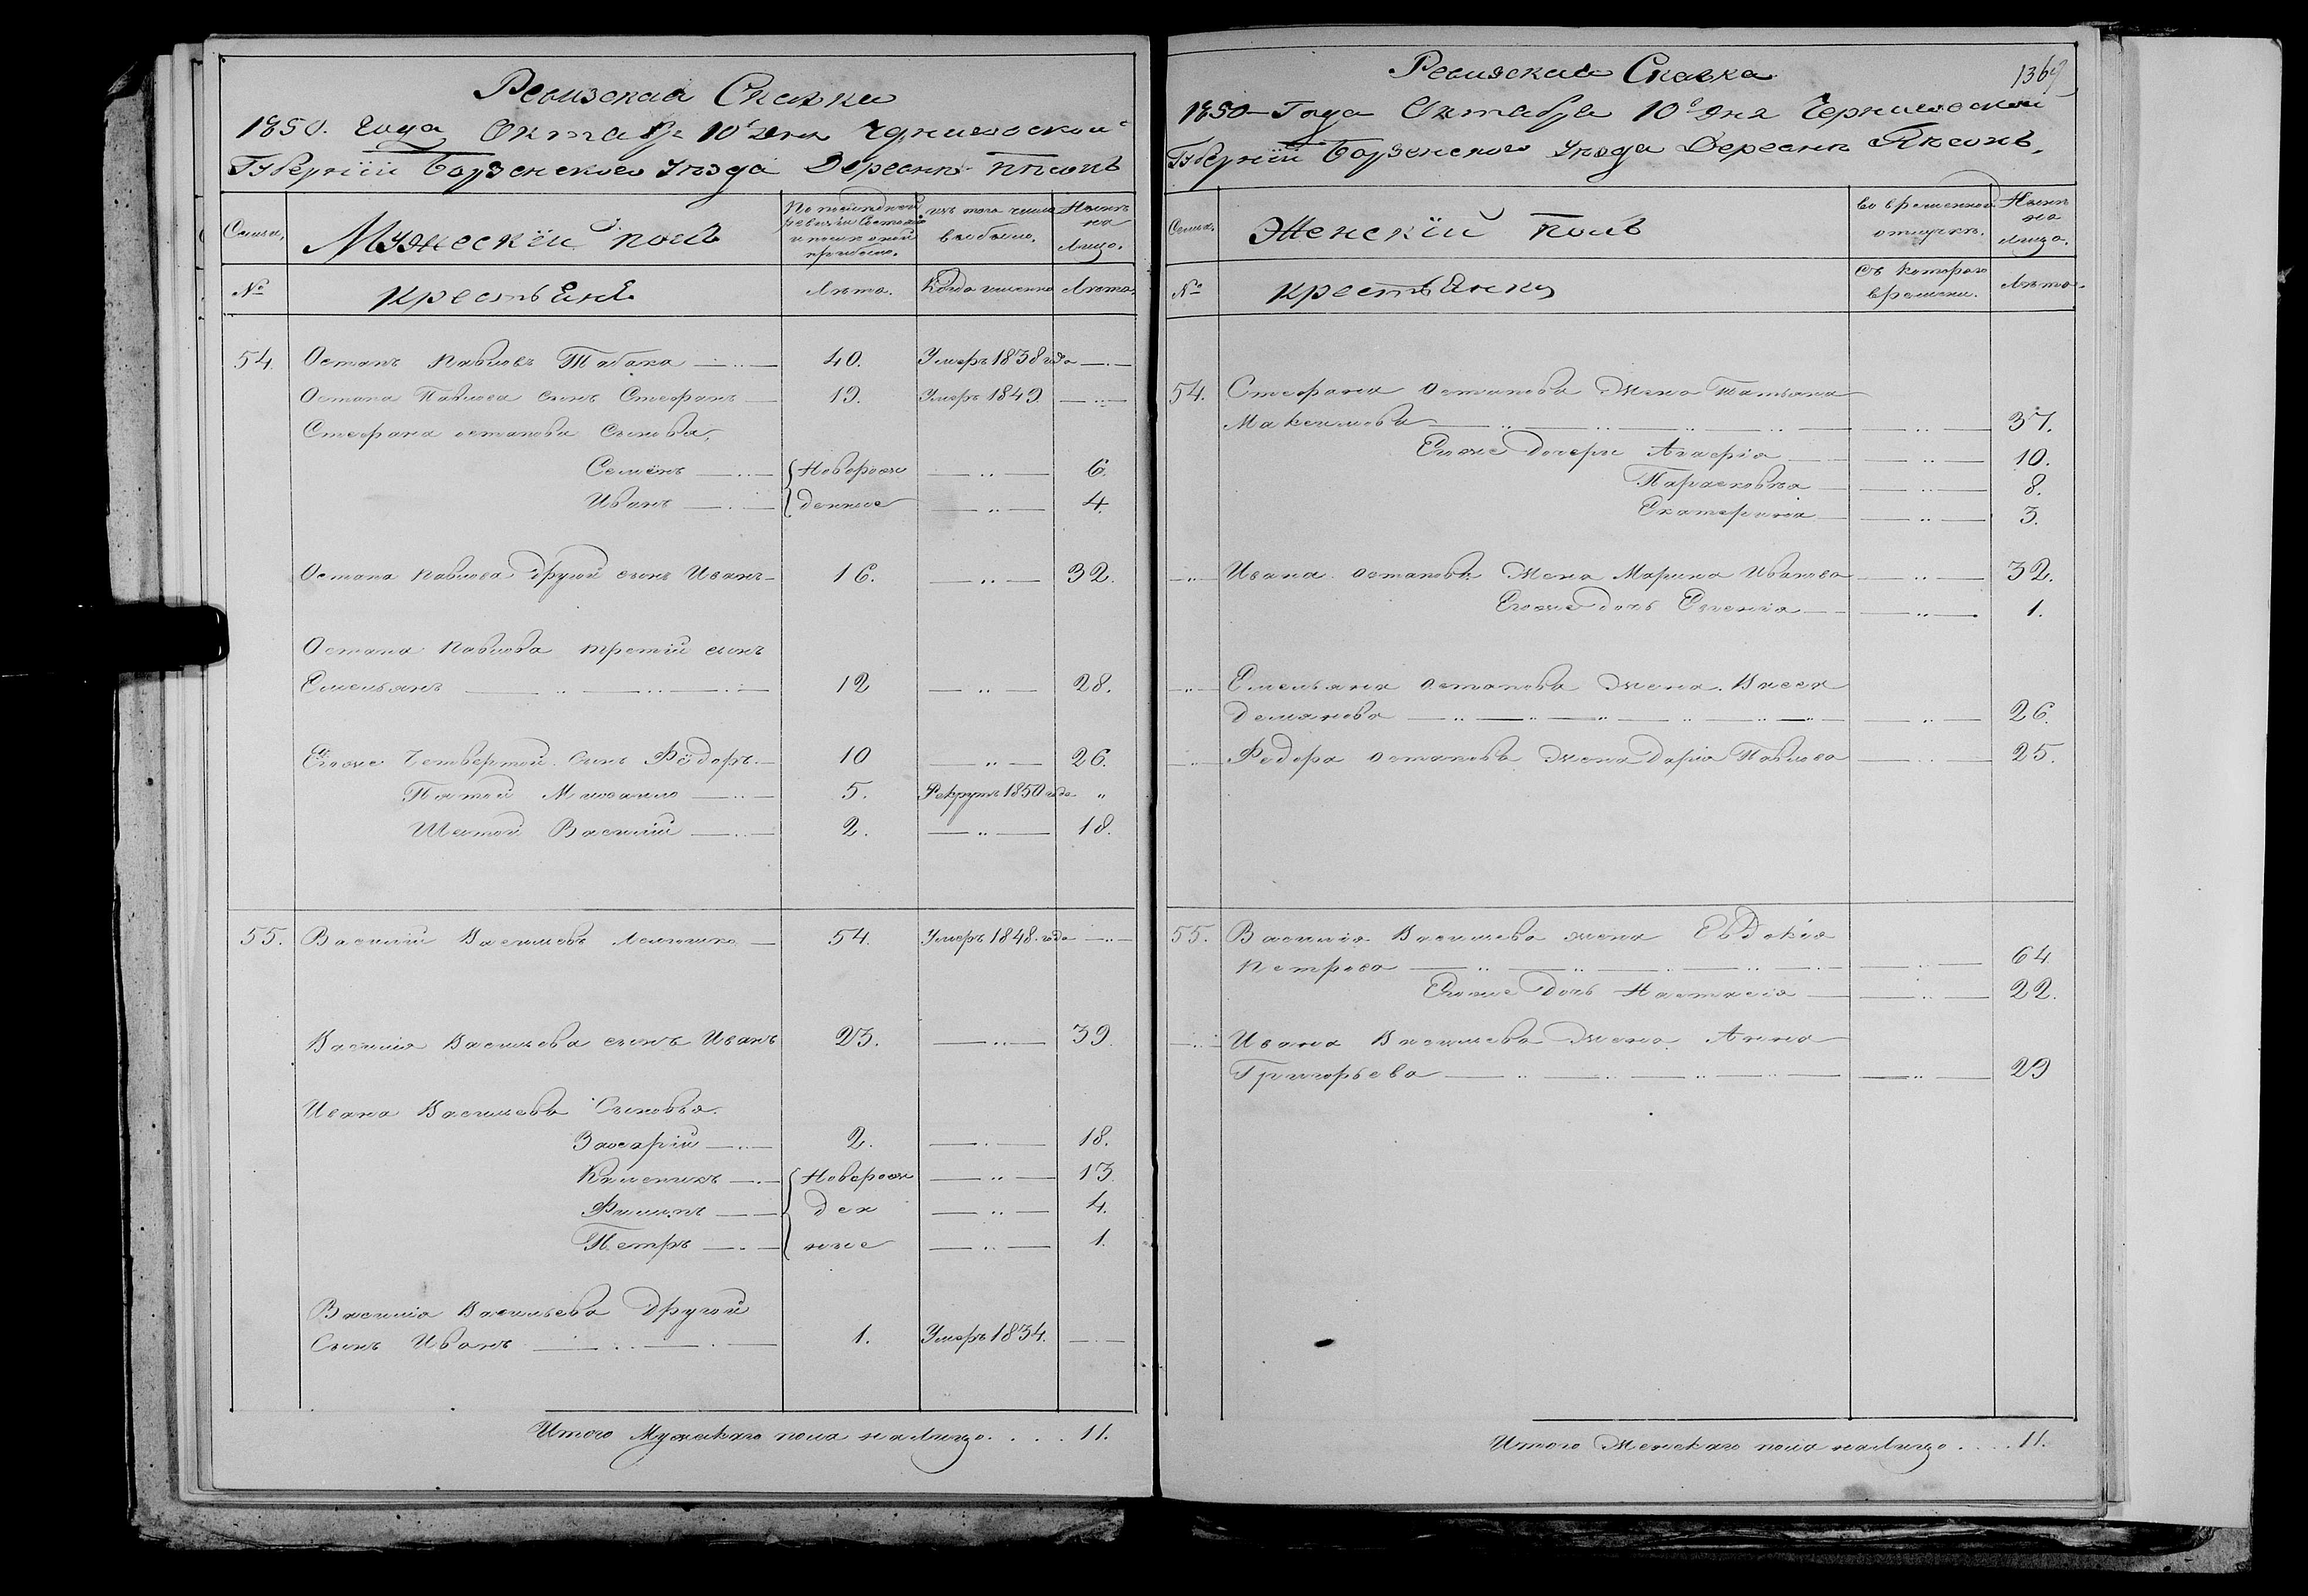 Ревизская Сказка
1850. Года Октября 10го дня Черниговской
Губернїи Борзенского Уѣзда Деревни
Семьи,
Мужескїй полъ
По последней ревизїи состояло и после оной прибыло.
изъ того числа выбыло.
Нынѣ на Лицо.
№
крестьяне
Лѣта.
Когда именно
Лѣта.
54. Остапъ Павловъ Табака 40. Умеръ 1838 года
Остапа Павлова сынъ Стефанъ 19. Умеръ 1849.
Стефана остапова Сыновья,
Семёнъ Новорож 6.
Иванъ денные 4.
Остапа Павлова другой сынъ Иванъ 16. 32.
Остапа Павлова третїй сынъ
Емельянъ 12 28.
Егоже Четвертой Сынъ Фёдоръ 10 26.
Пятой Михайло 5. Рекрутъ 1850 года „
Шестой Василїй 2. 18.
55. Василїй Васильевъ 54. Умеръ 1848. года
Василїя Васильева сынъ Иванъ 23. 39.
Ивана Васильева Сыновья.
Захарїй 2. 18.
Новорож 13.
Филипъ ден 4.
Петръ ные 1.
Василїя Васильева Другой
Сынъ Иванъ 1. Умеръ 1834.
Итого Мужескаго пола на Лицо. . . . 11.
Ревизская Сказка
1369
1850 Года Октября 10го дня Черниговской
Губернїи Борзенского Уѣзда Деревни
Семьи.
Женскїй полъ
во временной отлучкѣ.
Нынѣ на Лицо.
№
крестьянки
Съ которого времени.
Лѣта.
54. Стефана Остапова Жена Татьяна
Максимова 37.
Егоже Дочери Агафїя 10.
Парасковѣя 8.
Екатерина 3.
Ивана остапова Жена Марина Иванова 32.
Егоже дочь Евгенїя 1.
Емельяна Остапова Жена Васса
Демянова 26.
Федора остапова Жена Дарїя Павлова 25.
55. Василїя Васильева жена Евдокїя
Петрова 64
Егоже Дочь Настасїя 22.
Ивана Васильева Жена Анна
Григорьева 29
Итого Женскаго пола на Лицо . . . . 11.